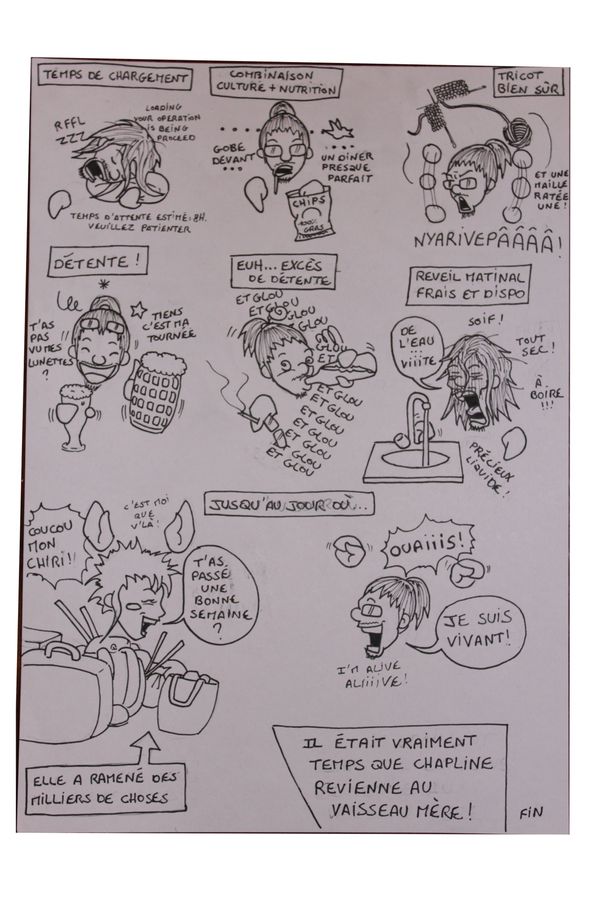 TEMPS DE CHARGEMENT
RFFL
ZZZ
LOADING
YOUR OPERATION
IS BEING
PROCEED
TEMPS D'ATTENTE ESTIMÉ: 8H.
VEUILLEZ PATIENTER
COMBINAISON
CULTURE + NUTRITION
GOBE
DEVANT
UN DINER
PRESQUE
PARFAIT
CHIPS
100%
GRAS
TRICOT
BIEN SÛR
ET UNE
MAILLE
RATÉE
UNE!
NYARIVEPÂÂÂÂ!
DÉTENTE!
T'AS
PAS
VU MES
LUNETTES
?
TIENS
C'EST MA
TOURNÉE
EUH... EXCÈS
DE DÉTENTE
ET GLOU
ET GLOU
GLOU
GLOU
GLOU
ET
ET GLOU
ET GLOU
ET GLOU
ET GLOU
ET GLOU
ET GLOU
ET GLOU
REVEIL MATINAL
FRAIS ET DISPO
DE
L'EAU
VIIITE
SOIF!
TOUT
SEC!
À
BOIRE
!!!
PRÉCIEUX
LIQUIDE!
JUSQU'AU JOUR OÙ...
COUCOU
MON
CHIRI!!
C'EST MOI
QUE
V'LÀ!
T'AS
PASSÉ
UNE
BONNE
SEMAINE
?
OUAIIIS!
JE SUIS
VIVANT!
I'M ALIVE
ALIIIIVE!
ELLE A RAMENÉ DES
MILLIERS DE CHOSES
IL ÉTAIT VRAIMENT
TEMPS QUE CHAPLINE
REVIENNE AU
VAISSEAU MÈRE!
FIN